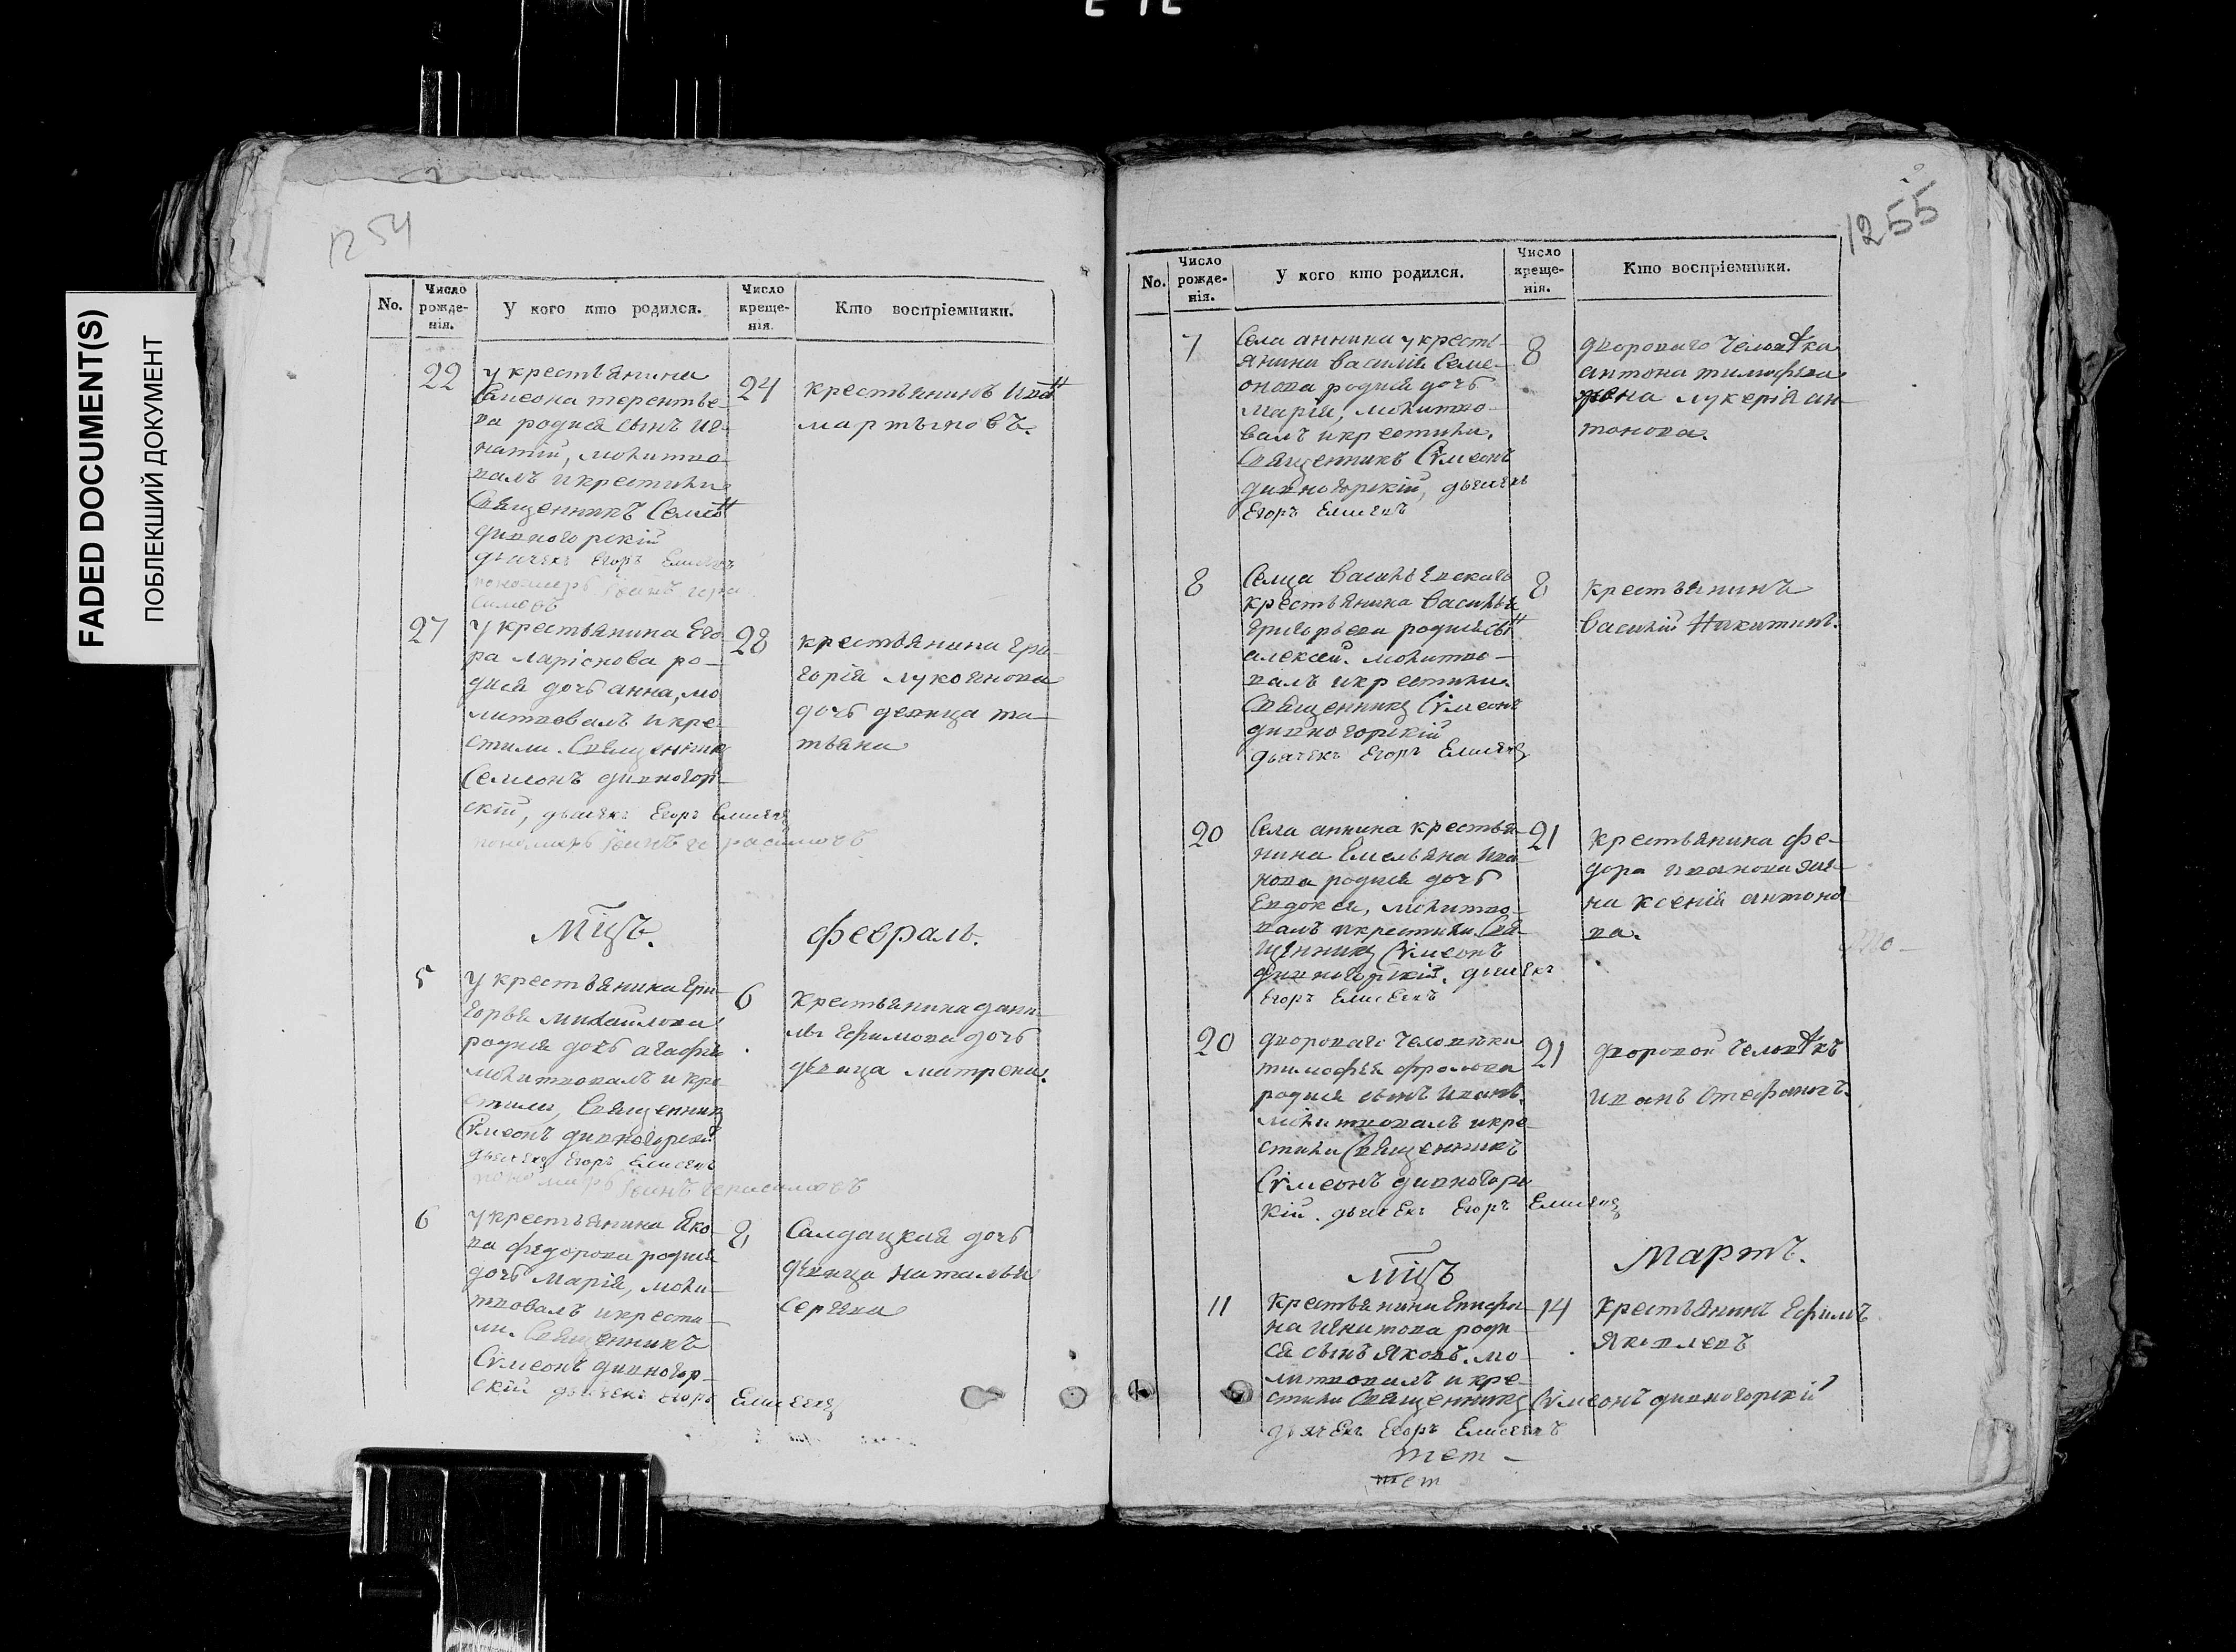 FADED DOCUMENT(S)
ПОБЛЕКШИЙ ДОКУМЕНТ
1254
No.
Число рожде-нія.
У кого кто родился.
Число креще-нія.
Кто воспріемники.
22
у крестьянина
Симеона терентье-
ва родися сынъ иг-
натій, молитво-
валъ и крестили
Священникъ Семіонъ
дивногорскій
дьячекъ Егоръ Елисеевъ
пономарь Іоаннъ гера
симовъ
24
крестьянинъ Иванъ
мартыновъ.
27
У крестьянина Его
ра ларіонова ро-
дися дочь анна, мо
литвовалъ и кре-
стили. Священникъ
Семионъ дивногор-
скій, дьячекъ Егоръ Елисеевъ
пономарь Іоаннъ герасимовъ
28
крестьянина гри-
горія лукоянова
дочь девица та-
тьяна
Мцъ.
февраль.
5
У крестьянина Гри-
горья михайлова
родися дочь агафія
молитвовалъ и кре
стили, Священникъ
Сѵмеонъ дивногорскій
дьячекъ Егоръ Елисеевъ
пономарь Іоаннъ герасимовъ
6
Крестьянина дани
лы Ефимова дочь
дѣвица матрена.
6
у крестьянина Яко-
ва федорова родися
дочь Марія, моли-
твовалъ и крести-
ли. Священникъ
Сѵмеонъ дивногор-
скій дьячекъ Егоръ Елисеевъ
8
Салдацкая дочь
дѣвица наталья
сергѣева
1255
No.
Число рожде-нія.
У кого кто родился.
Число креще-нія.
Кто воспріемники.
7
Села аннина у кресть-
янина василія Семе-
онова родися дочь
марія, молитво-
валъ и крестили.
Священникъ Сѵмеонъ
дивногорскій, дьячекъ
Егоръ Елисеевъ
8
двороваго человѣка
антона тимофѣева
жена лукерія ан-
тонова.
8
Селца васильевскаго
крестьянина василья
григорьева родися сынъ
алексей. молитво-
валъ и крестили.
Священникъ Сѵмеонъ
дивногорскій
дьячекъ Егоръ Елисеевъ
8
крестьянинъ
василій Никитинъ.
20
Села аннина крестья-
нина Емельяна ива
нова родися дочь
Евдокея, молитво-
валъ и крестили. Свя-
щенникъ Сѵмеонъ
дивногорскій. дьячекъ
Егоръ Елисеевъ
21
крестьянина фе-
дора иванова же-
на ксенія антоно
ва.
20
двороваго человѣка
тимофѣя фролова
родися сынъ иванъ.
молитвовалъ и кре-
стили Священникъ
Сѵмеонъ дивногорс
кій. дьячекъ Егоръ Елисеевъ
21
дворовой человѣкъ
иванъ Стефановъ.
мцъ
мартъ.
11
крестьянина Епифа-
на игнатова роди
ся сынъ яковъ. мо-
литвовалъ и кре-
стили Священникъ Сѵмеонъ дивногорскій
дьячекъ Егоръ Елисеевъ
14
крестьянинъ Ефимъ
яковлевъ